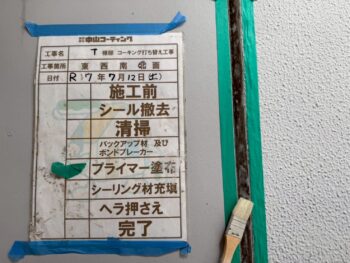 ㈱中山コーティング
工事名 T様邸 コーキング打ち替え工事
工事箇所 東 西 南 北 面
日付 R 7年 7月 12日(土)
施工前
シール撤去
清掃
バックアップ材 及び
ボンドブレーカー
プライマー塗布
シーリング材充填
ヘラ押さえ
完了